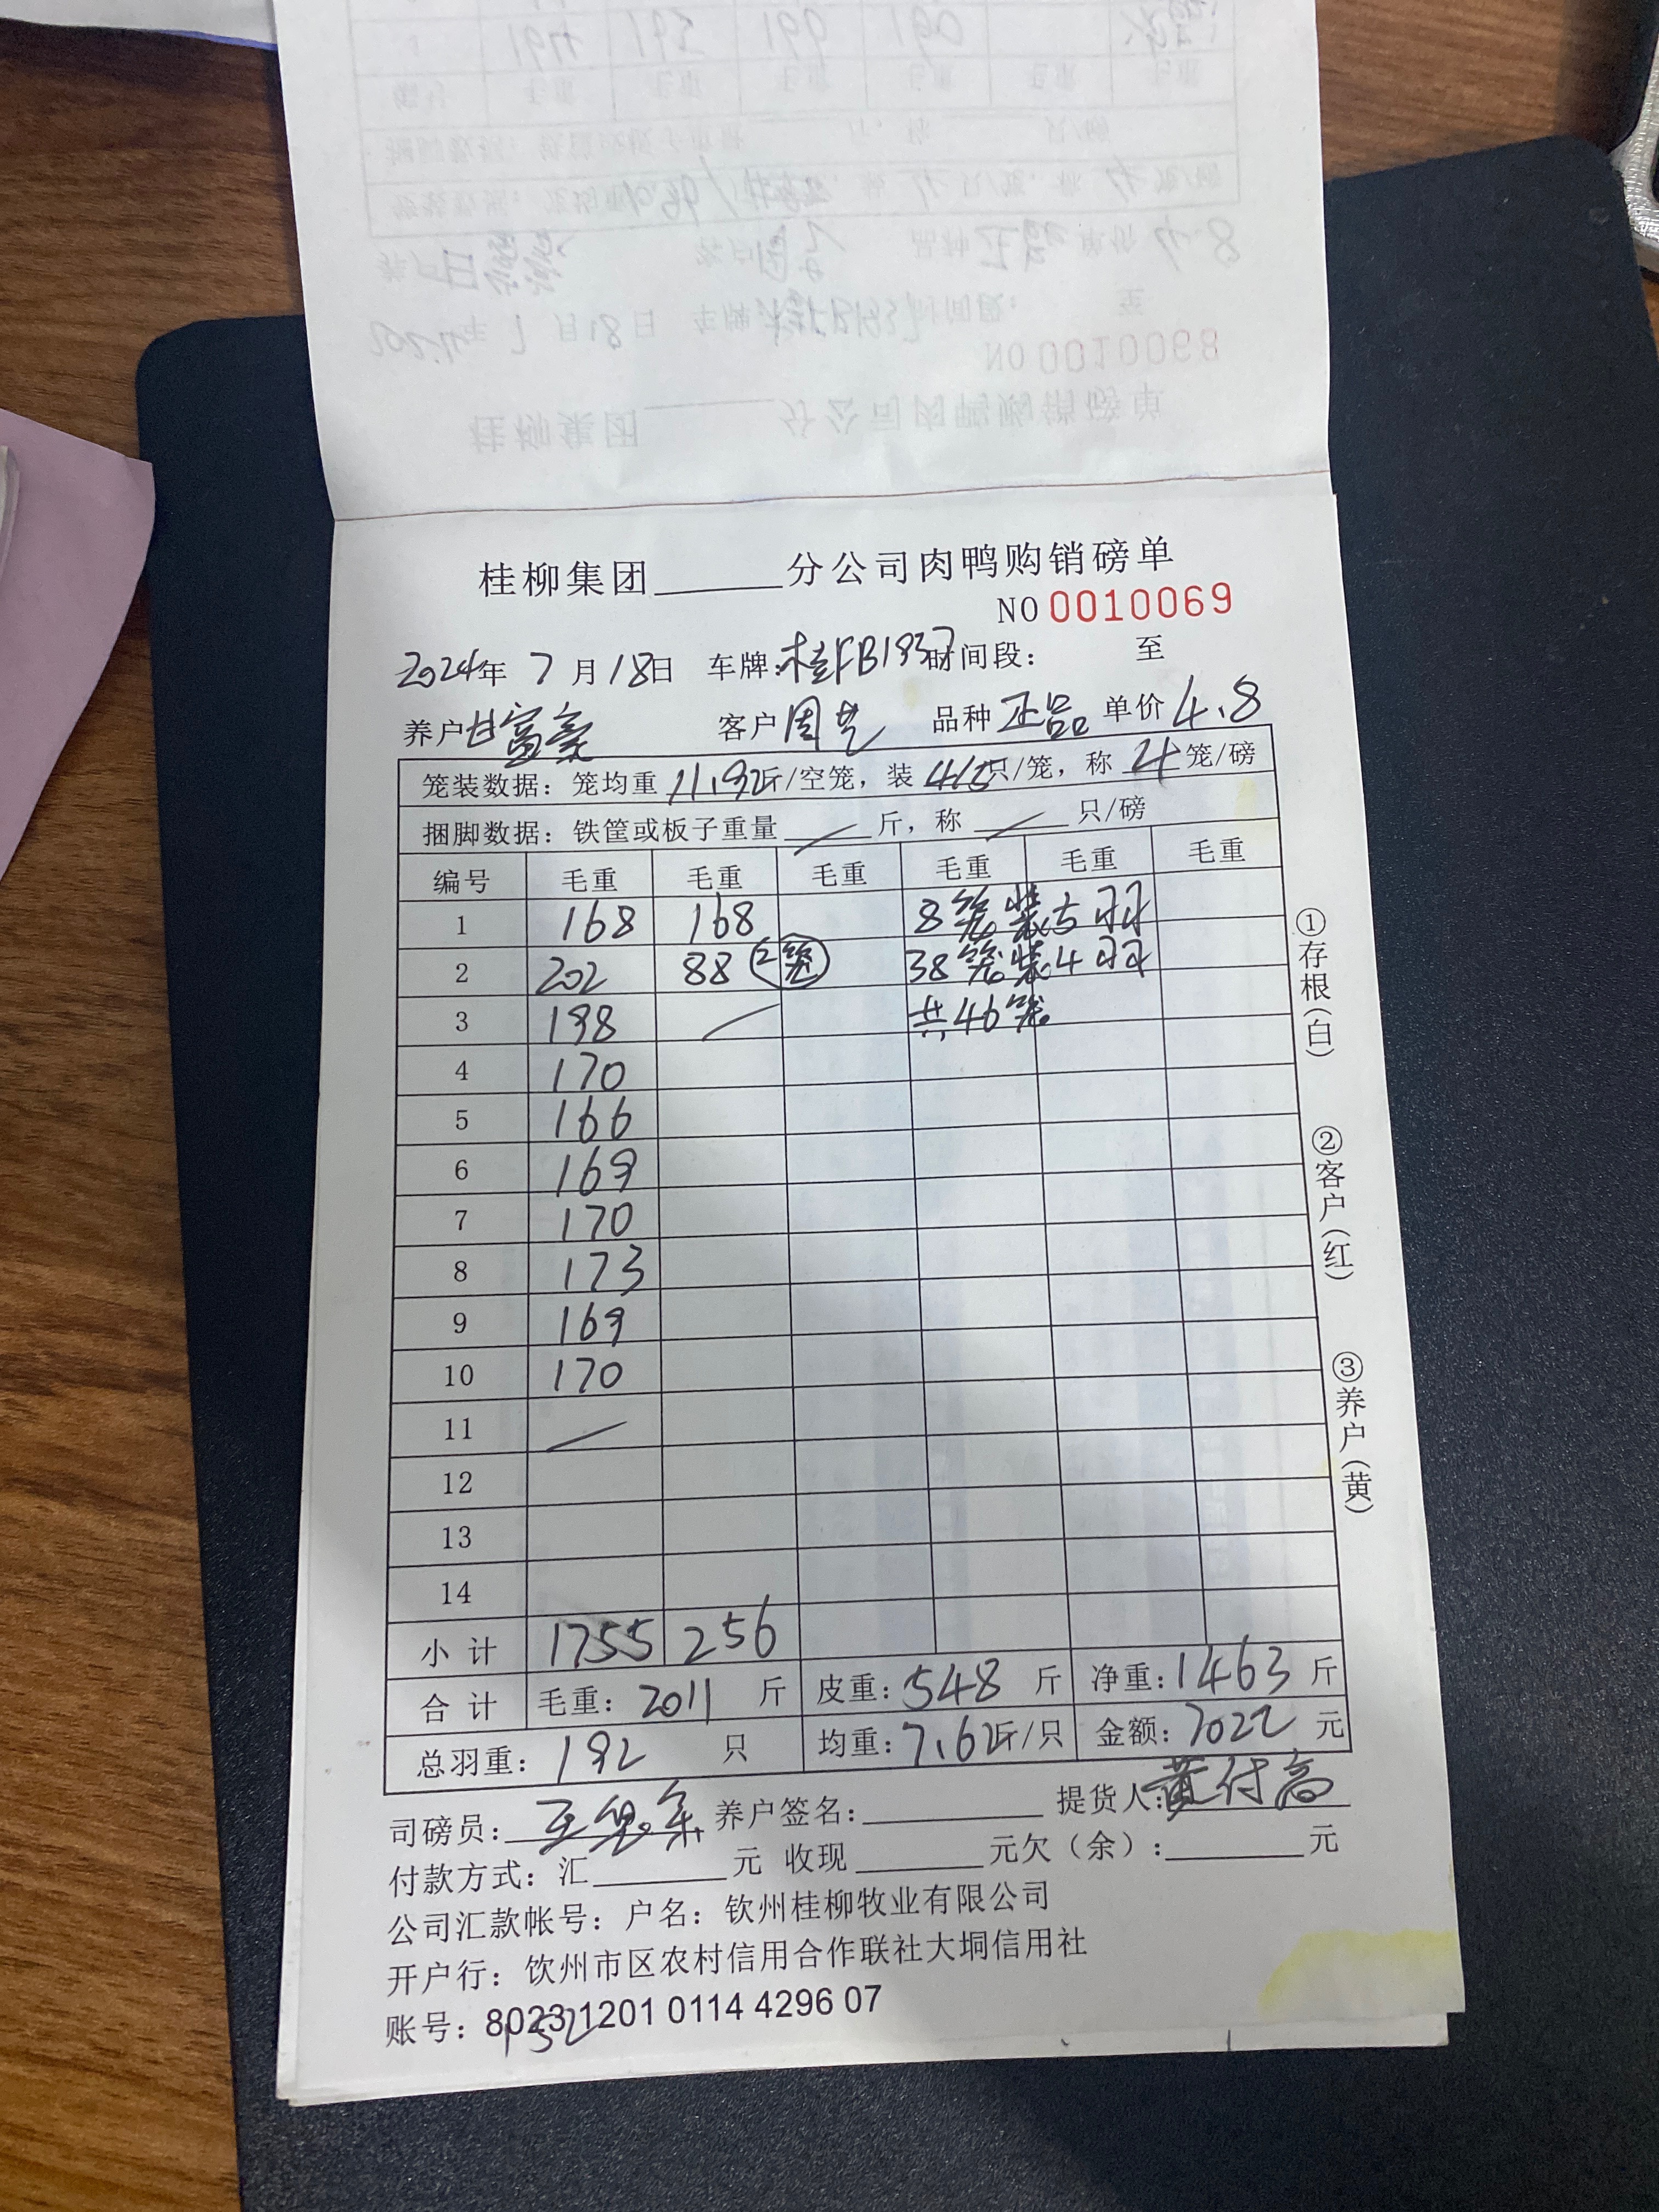 桂柳集团______分公司肉鸭购销磅单
NO 0010069
2024年 7 月 18日 车牌:桂FB1937 时间段: 至
养户 甘富豪 客户 周艺 品种 正品 单价 4.8
笼装数据：笼均重 11.92斤/空笼，装 4/5只/笼，称 4 笼/磅
捆脚数据：铁筐或板子重量 / 斤，称 / 只/磅
编号 毛重 毛重 毛重 毛重 毛重 毛重
1 168 168 8笼装5羽
2 202 88 (2笼) 38笼装4羽
3 198 / 共46笼
4 170
5 166
6 169
7 170
8 173
9 169
10 170
11 /
12
13
14
小计 1755 256
合计 毛重：2011 斤 皮重：548 斤 净重：1463 斤
总羽重：192 只 均重：7.62斤/只 金额：7022 元
司磅员： 养户签名：______ 提货人：黄付高
付款方式：汇______元 收现______元欠（余）：______元
公司汇款帐号：户名：钦州桂柳牧业有限公司
开户行：钦州市区农村信用合作联社大垌信用社
账号：8023 1201 0114 4296 07
152
①存根（白） ②客户（红） ③养户（黄）